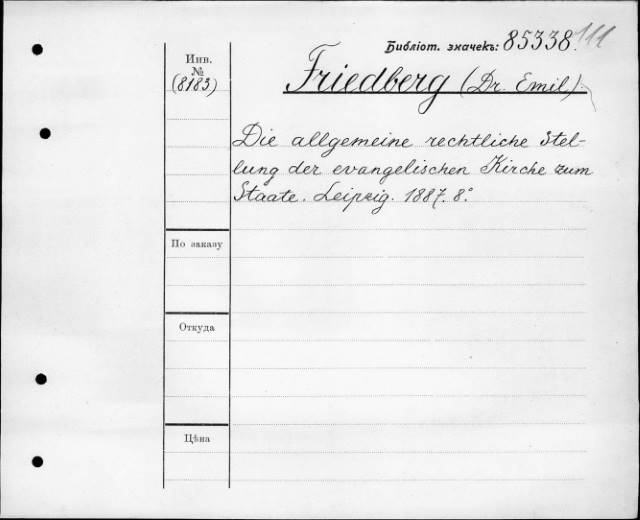 Библіот. значекъ: 85338.111
Инв.
№
(8183)
Friedberg (Dr. Emil).
Die allgemeine rechtliche Stel-
lung der evangelischen Kirche zum
Staate. Leipzig. 1887. 8.°
По заказу
Откуда
Цѣна